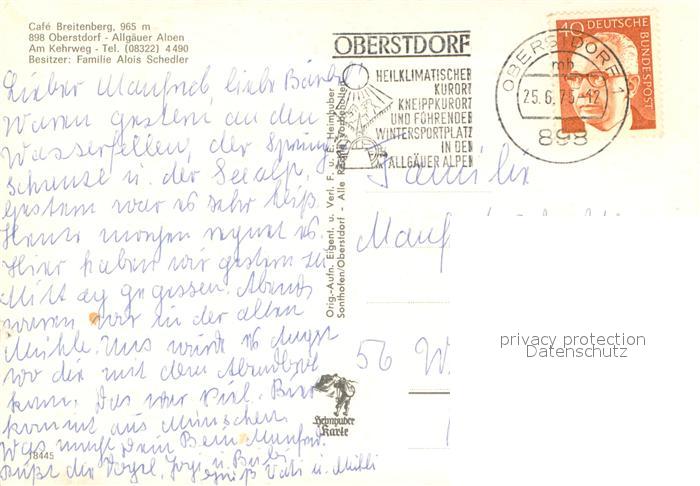 Café Breitenberg, 965 m
898 Oberstdorf - Allgäuer Alpen
Am Kehrweg - Tel. (08322) 4490
Besitzer: Familie Alois Schedler
Lieber Manfred liebe Bärbel!
Waren gestern an den
Wasserfällen, der Sprung
schanze u. der Seealp.
Gestern war es sehr heiß.
Heute morgen regnet es.
Hier haben wir gestern zu
Mittag gegessen. Abends
waren wir in der alten
Mühle. Uns wurde es Angst
wo die mit dem
kam. Das war viel. Bier
kommt aus München.
Was macht Dein Bein Manfred.
Grüßt die Vögel,
u.
Grüß Vati u. Mutti
18445
Orig.-Aufn. Eigent. u. Verl. F. u. E. Heimhuber
Sonthofen/Oberstdorf - Alle Rechte vorbehalten
OBERSTDORF
HEILKLIMATISCHER
KURORT
KNEIPPKURORT
UND FÜHRENDER
WINTERSPORTPLATZ
IN DEN
ALLGÄUER ALPEN
OBERSTDORF 1
mb
25.6.75-12
898
40 DEUTSCHE
BUNDESPOST
Familie
Manf
56 W
privacy protection
Datenschutz
Heimhuber
Karte